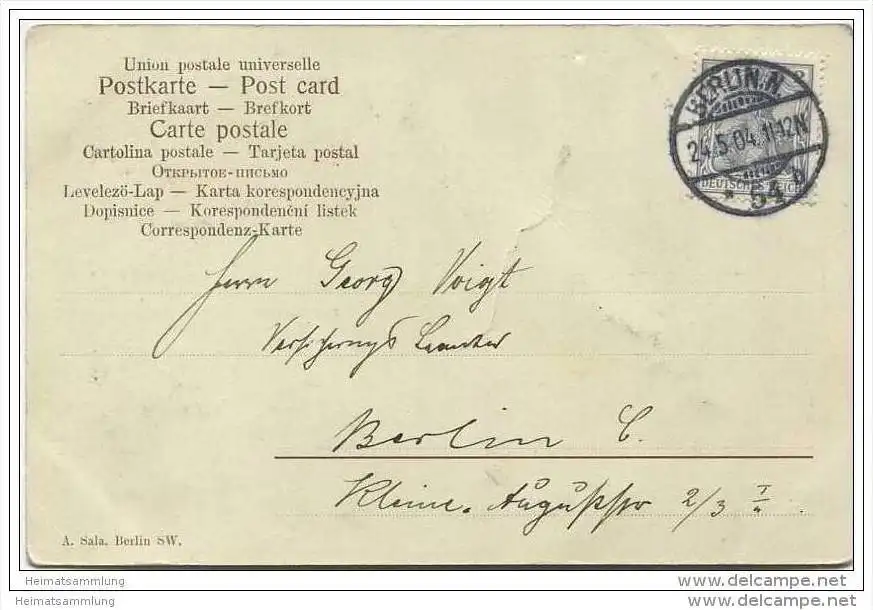 Union postale universelle
Postkarte — Post card
Briefkaart — Brefkort
Carte postale
Cartolina postale — Tarjeta postal
Открытое-письмо
Levelező-Lap — Karta korespondencyjna
Dopisnice — Korespondenční listek
Correspondenz-Karte
BERLIN.N.
24.5.04.11-12N
* 54 b
DEUTSCHES REICH
Herrn Georg Voigt
Versicherungs Beamter
Berlin C.
Kleine. Auguststr 2/3
A. Sala. Berlin SW.
Heimatsammlung
Heimatsammlung
www.delcampe.net
www.delcampe.net